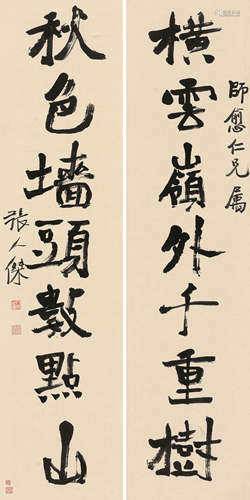 師愈仁兄属
橫雲嶺外千重樹
秋色墙頭數點山
張人傑